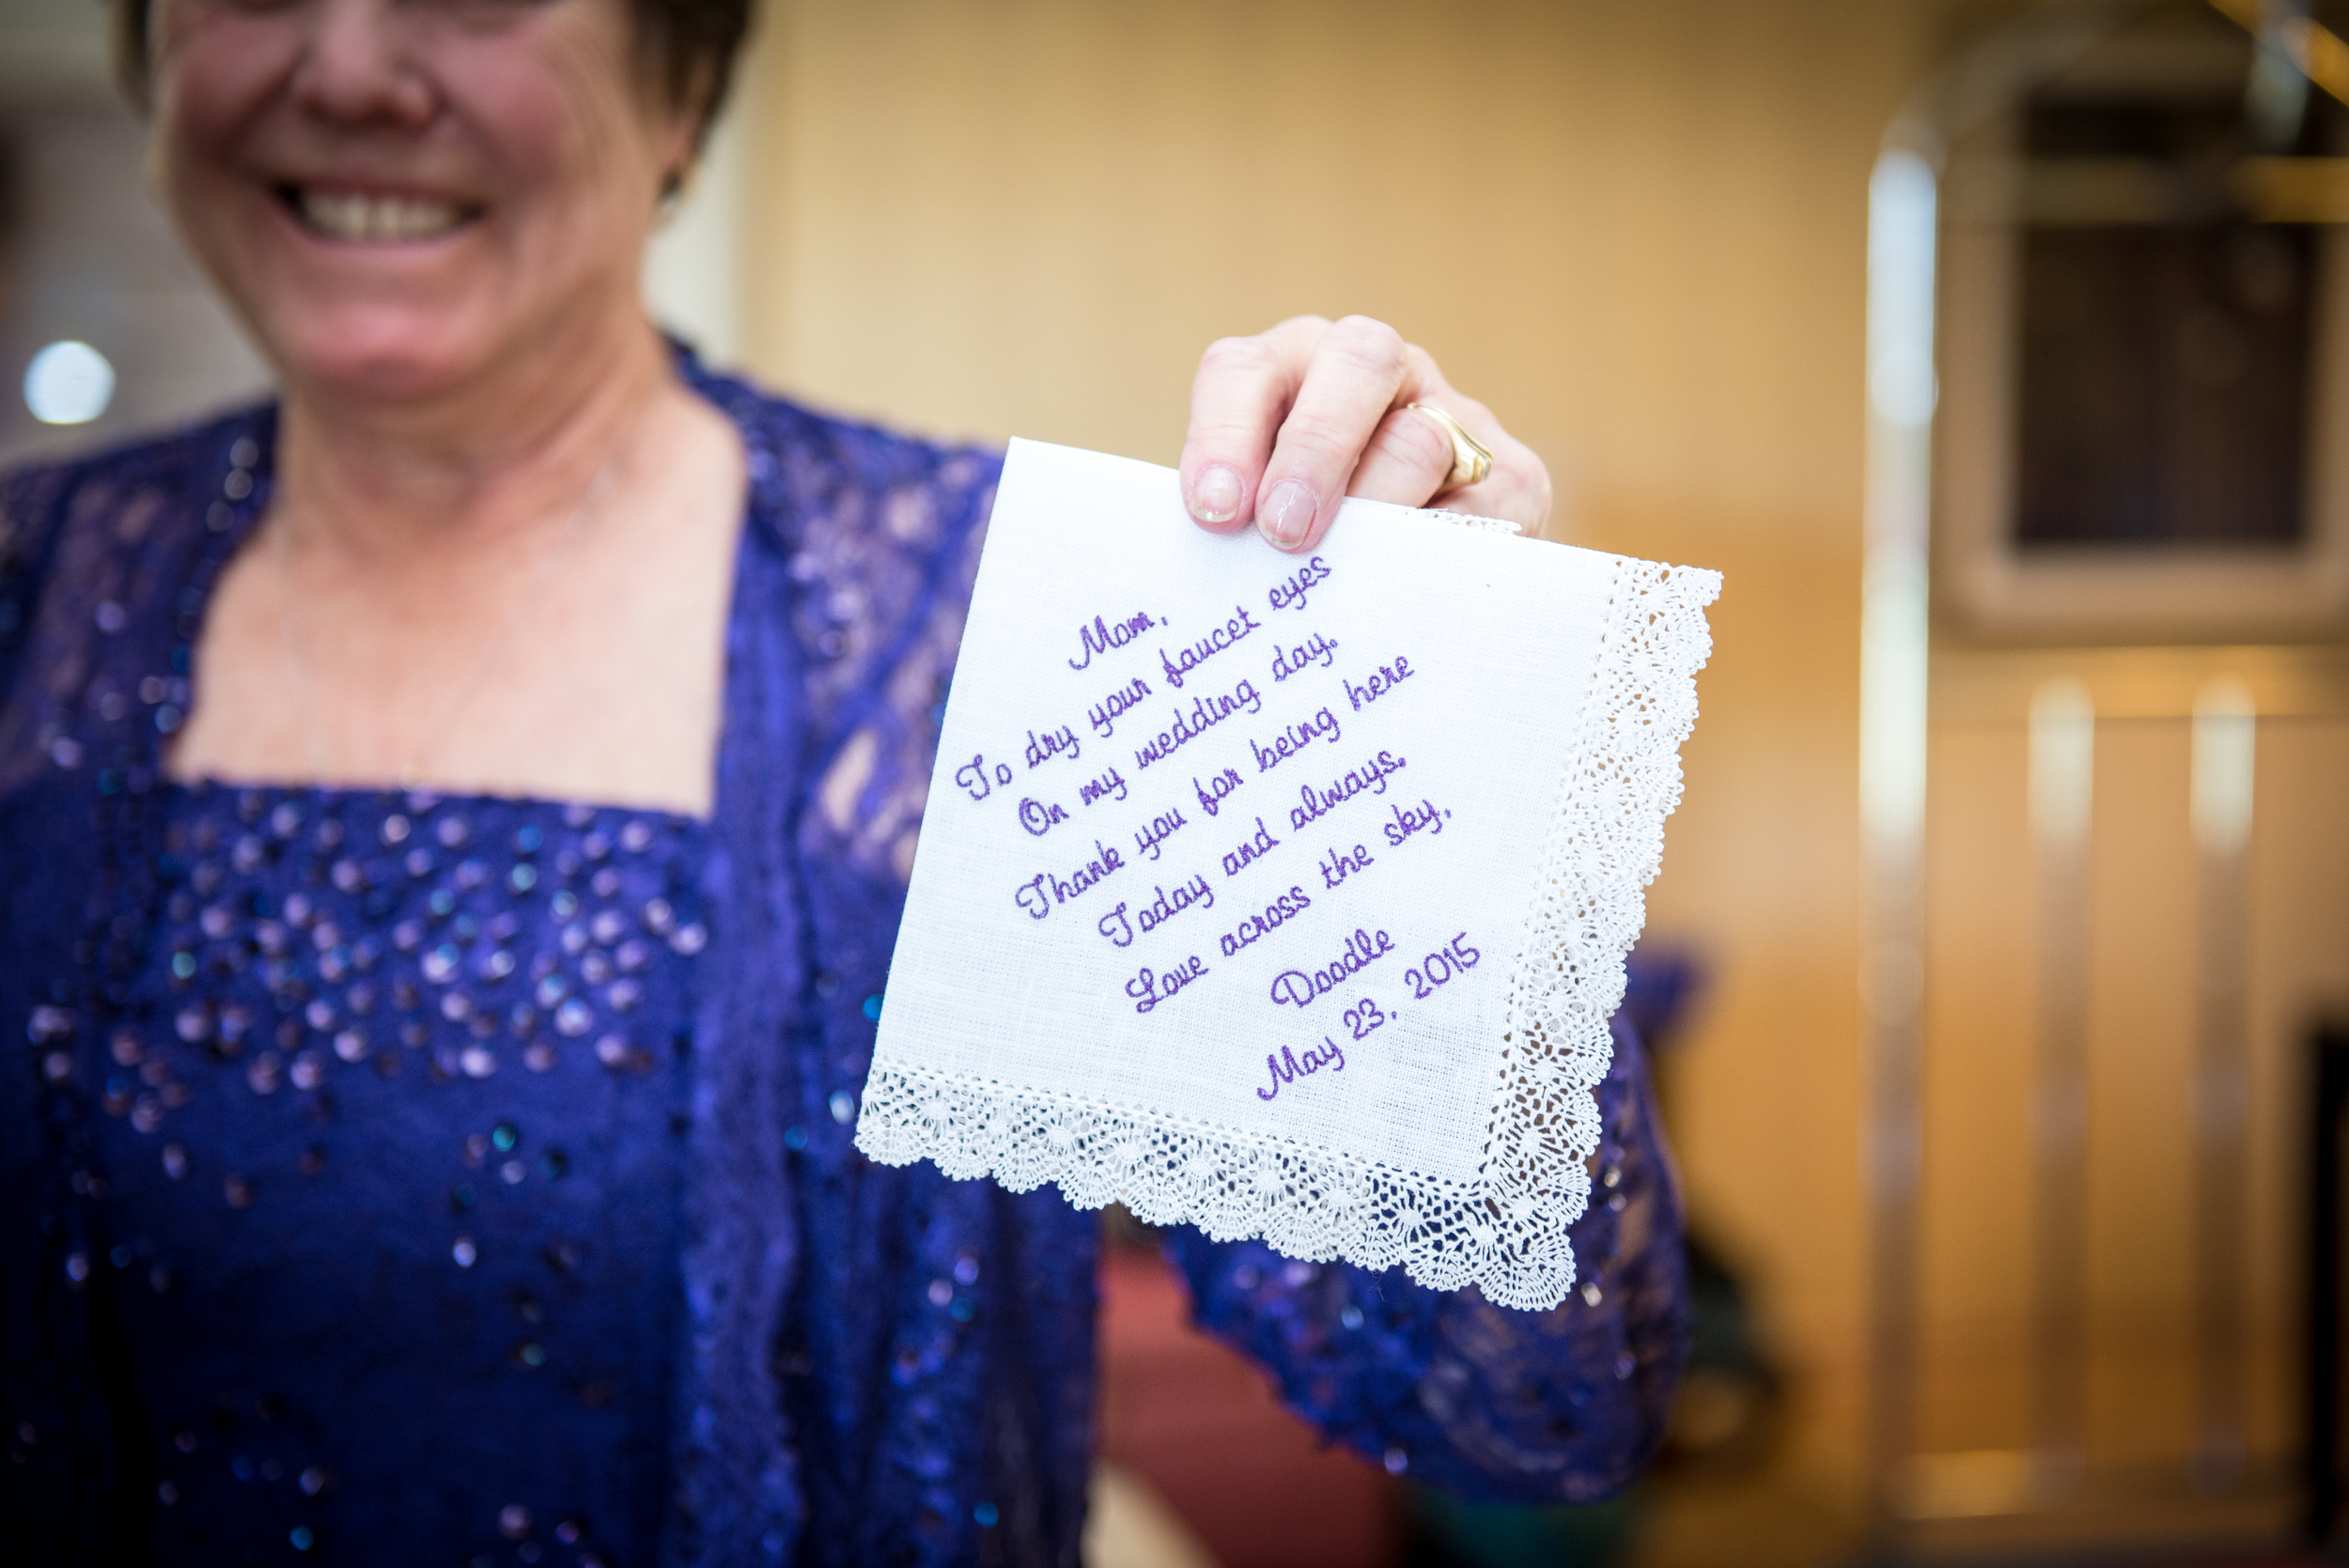 Mom,
To dry your faucet eyes
On my wedding day.
Thank you for being here
Today and always.
Love across the sky,
Doodle
May 23, 2015